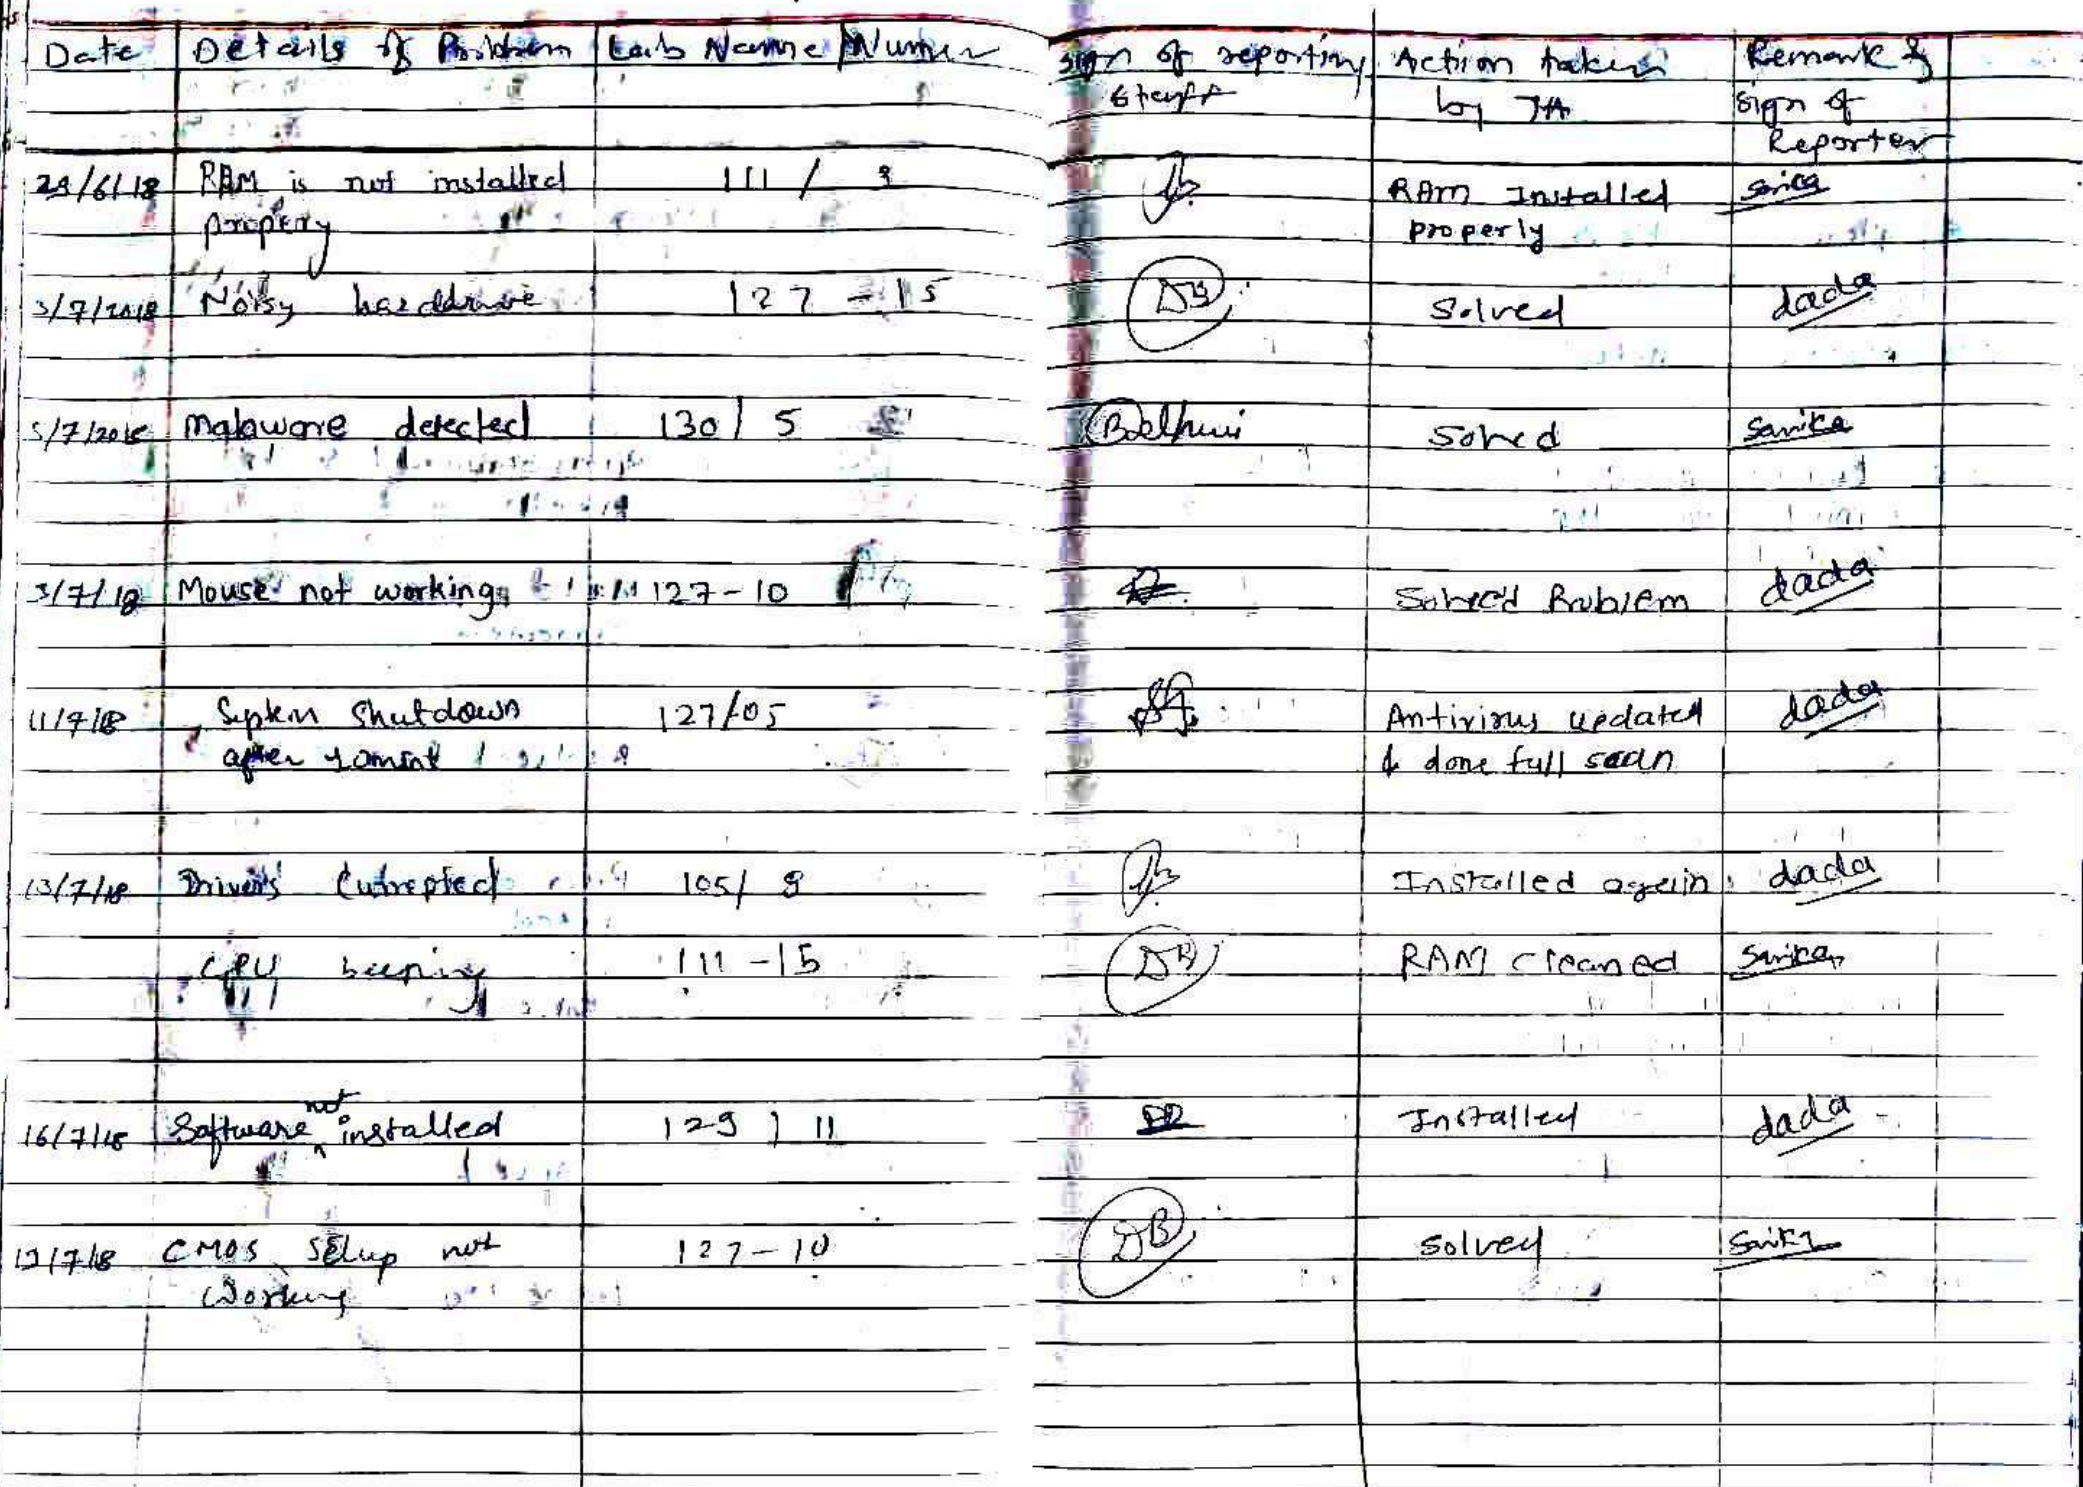 Date Details of Problem Lab Name/Number Sign of reporting Staff Action taken by TA Remark & Sign of Reporter
29/6/18 RAM is not installed 111 / RAM Installed Sarika
propery properly
3/7/2018 Noisy harddrive 127 - 15 DB Solved dada
5/7/2018 Malaware detected 130 / 5 Solved Sarika
3/7/18 Mouse not working 127-10 Solved Problem dada
11/7/18 System Shutdown 127/05 Antivirus updated dada
after & done full scan
13/7/18 Drivers Cutrepted 105/ Installed again dada
CPU beeping 111-15 DB RAM cleaned Sarika
not
16/7/18 Software ^ installed 129 / 11 Installed dada
CMOS Setup not 127-10 DB Solved Sarika
Working